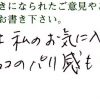 きになられたご意見やご
お書き下さい。
は私のお気に入
コのパリ感も